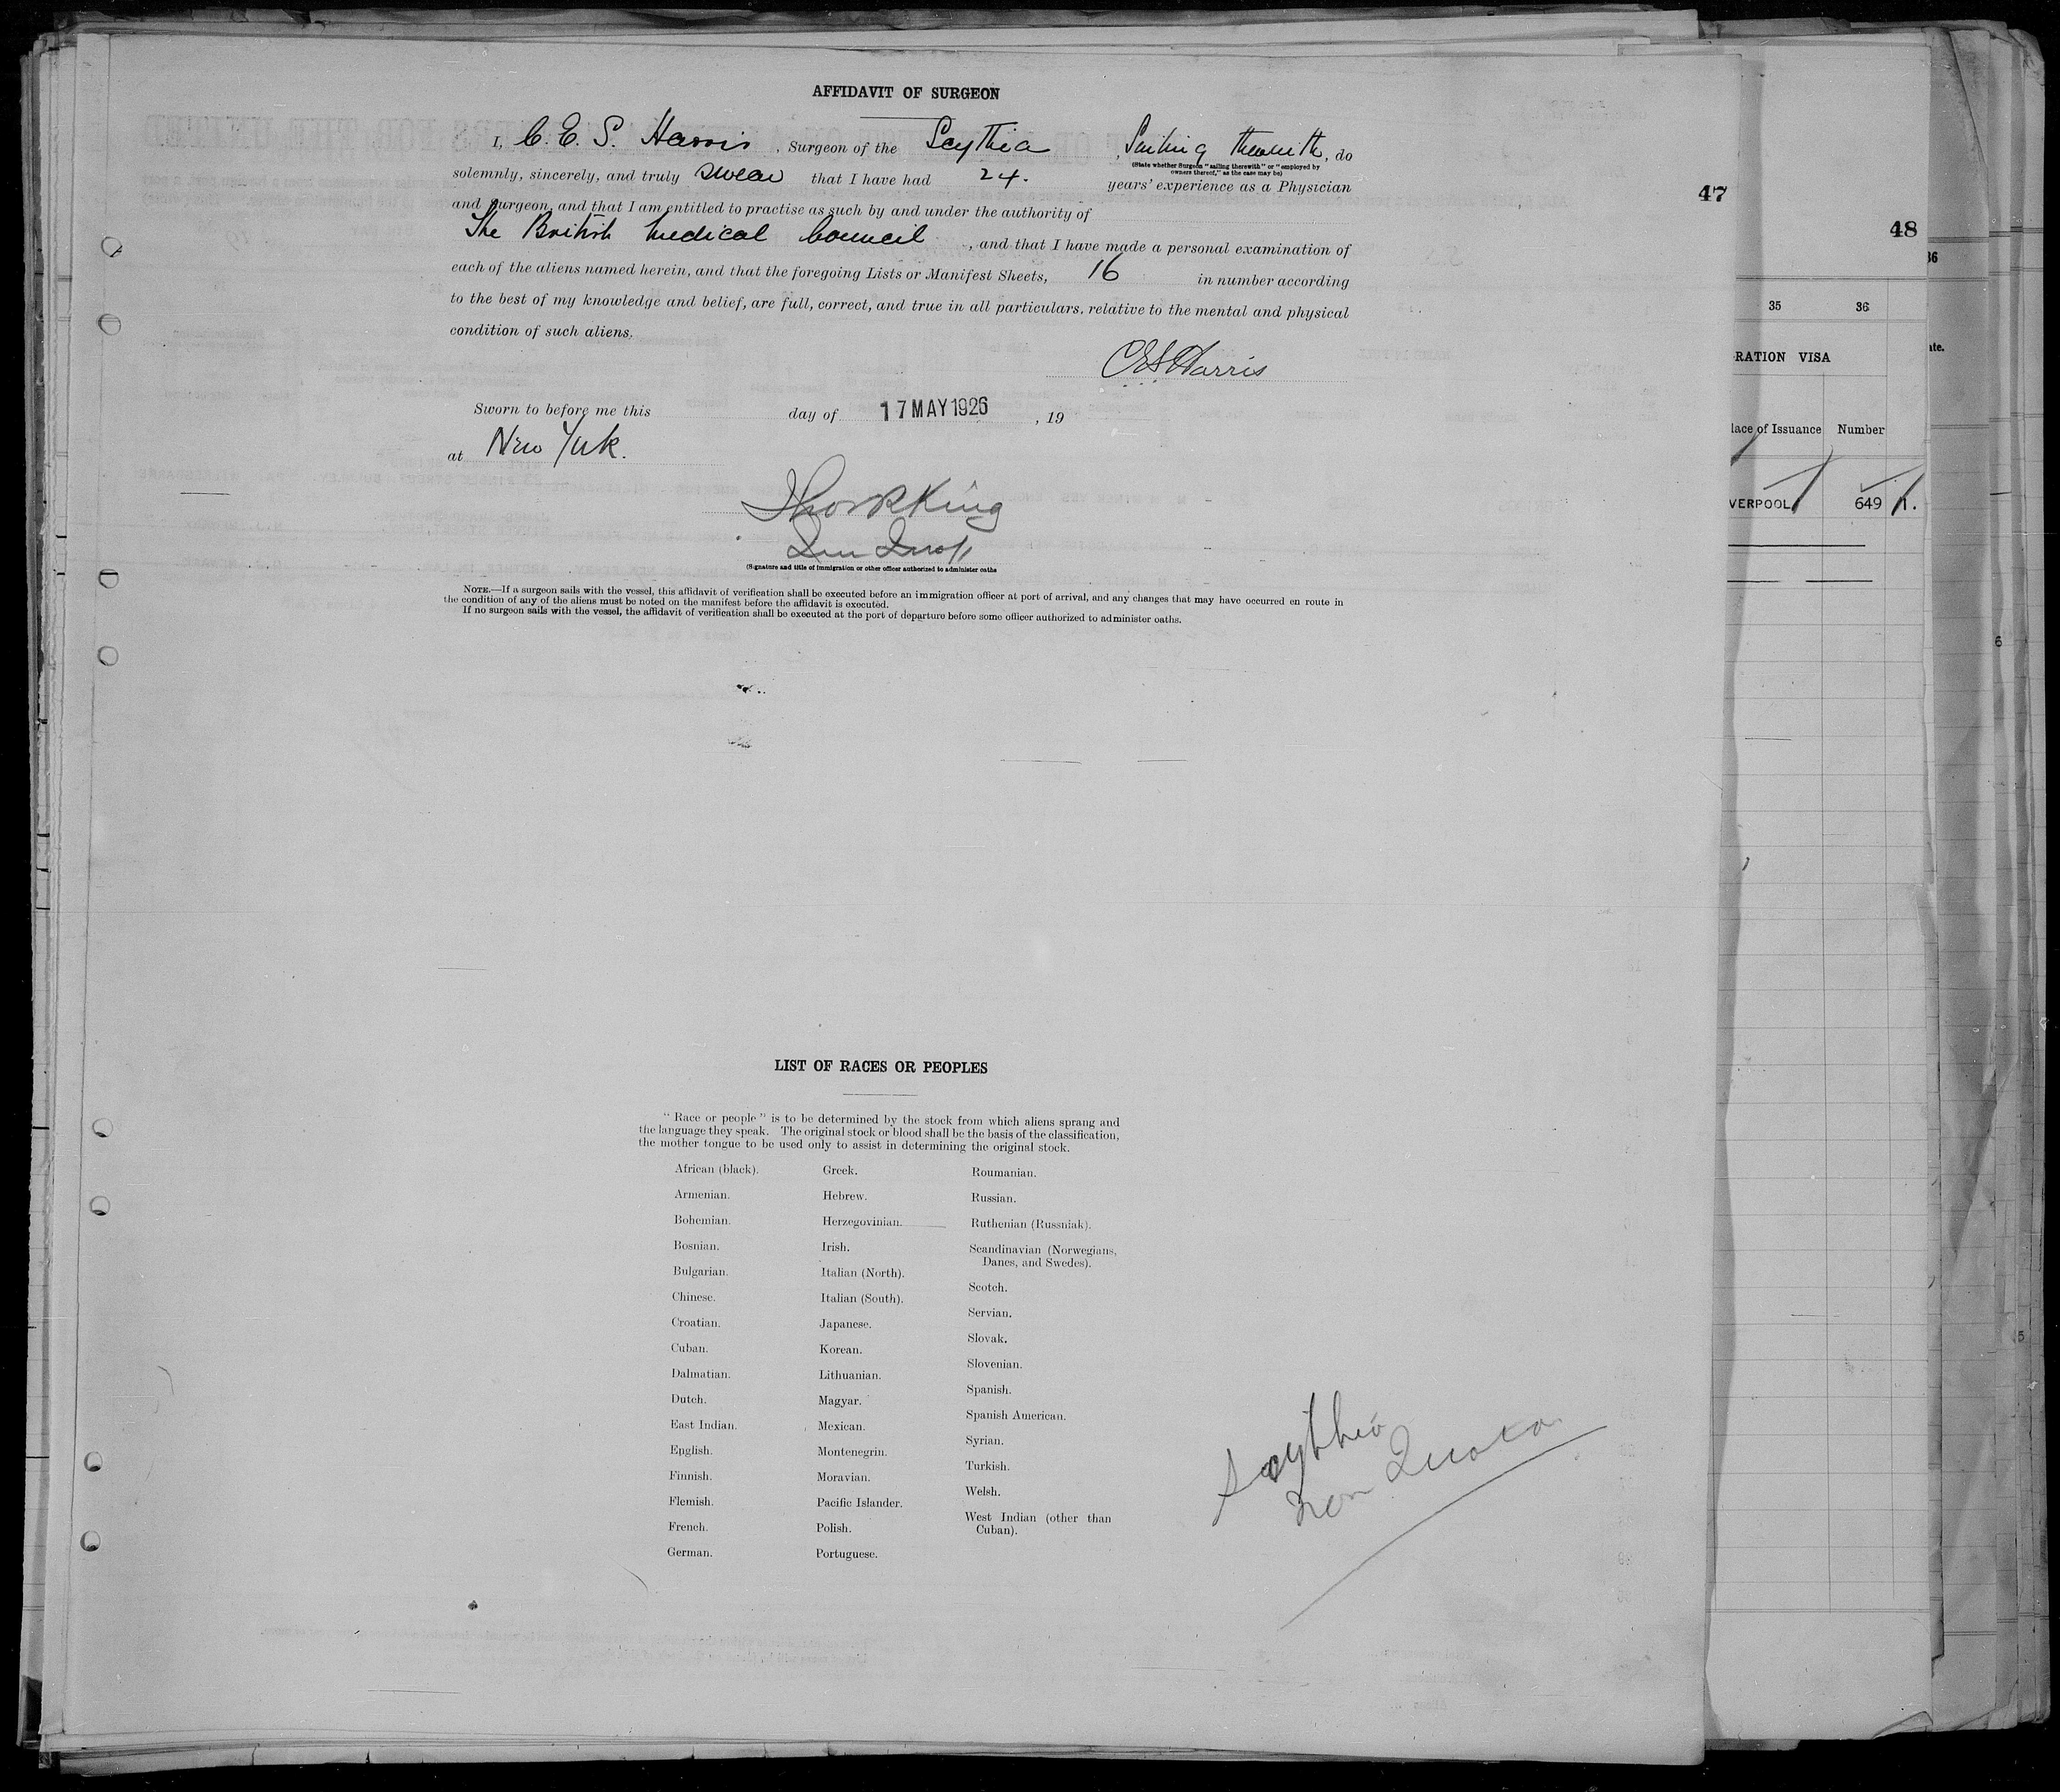 AFFIDAVIT OF SURGEON
I, C. E. S. Harris, Surgeon of the Scythia, Sailing therewith, do
(State whether Surgeon "sailing therewith" or "employed by
owners thereof," as the case may be)
solemnly, sincerely, and truly swear that I have had 24. years' experience as a Physician
and Surgeon, and that I am entitled to practise as such by and under the authority of
The British Medical Council, and that I have made a personal examination of
each of the aliens named herein, and that the foregoing Lists or Manifest Sheets, 16 in number according
to the best of my knowledge and belief, are full, correct, and true in all particulars, relative to the mental and physical
condition of such aliens.
CES Harris
Sworn to before me this day of 17 MAY 1926, 19
at New York.
King
(Signature and title of immigration or other officer authorized to administer oaths
NOTE.—If a surgeon sails with the vessel, this affidavit of verification shall be executed before an immigration officer at port of arrival, and any changes that may have occurred en route in
the condition of any of the aliens must be noted on the manifest before the affidavit is executed.
If no surgeon sails with the vessel, the affidavit of verification shall be executed at the port of departure before some officer authorized to administer oaths.
LIST OF RACES OR PEOPLES
"Race or people" is to be determined by the stock from which aliens sprang and
the language they speak. The original stock or blood shall be the basis of the classification,
the mother tongue to be used only to assist in determining the original stock.
African (black).
Armenian.
Bohemian.
Bosnian.
Bulgarian.
Chinese.
Croatian.
Cuban.
Dalmatian.
Dutch.
East Indian.
English.
Finnish.
Flemish.
French.
German.
Greek.
Hebrew.
Herzegovinian.
Irish.
Italian (North).
Italian (South).
Japanese.
Korean.
Lithuanian.
Magyar.
Mexican.
Montenegrin.
Moravian.
Pacific Islander.
Polish.
Portuguese.
Roumanian.
Russian.
Ruthenian (Russniak).
Scandinavian (Norwegians,
Danes, and Swedes).
Scotch.
Servian.
Slovak.
Slovenian.
Spanish.
Spanish American.
Syrian.
Turkish.
Welsh.
West Indian (other than
Cuban).
Scythia
Non Quota
47
48
36
35 36
RATION VISA
ate.
lace of Issuance Number
VERPOOL 649
6
5